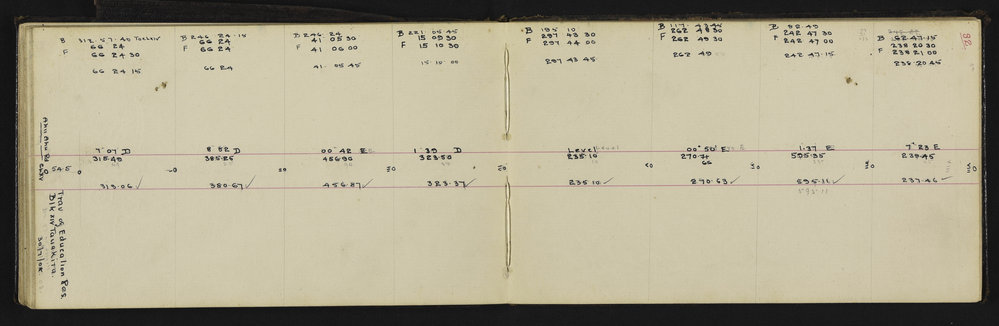 B 312.57.40
66 24
F 66 24 30
66 24 15
B 246 24 15
66 24
F 66 24
66 24
B 246.24
41 05 30
F 41 06 00
41 05 45
B 221 05 45
15 09 30
F 15 10 30
15 10 00
B 195 10
297 43 30
F 297 44 00
297 43 45
B 117 43 45
262 48 30
F 262 49 30
262 49
B 82 49
242 47 30
F 242 47 00
242 47 15
B 62 47 15
238 20 30
F 238 21 00
238 20 45
82
7° 07 D
315.49
313.06 ✓
8 52 D
385.25
380.67 ✓
00° 42 E
456.90
456.87 ✓
1° 39 D
323.50
323.37 ✓
Level
235.10
235.10 ✓
00° 50' E
270.71
270.63 ✓
1.37 E
595.35
595.11 ✓
7° 23 E
239.45
237.46 ✓
54.5
Trav of Education Res.
Blk XIV Tauakira.
30/7/08